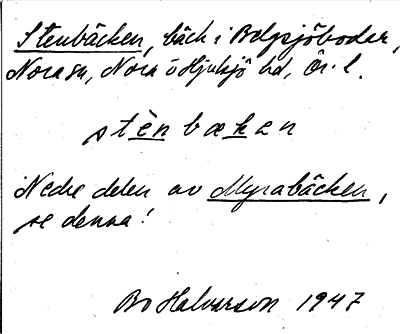 Stenbäcken, bäck i Bolgsjöbodar,
Nora sn, Nora o Hjulsjö hd, Ör. l.
stèn bækan
Nedre delen av Myrabäcken,
se denna!
Bo Halvarson 1947